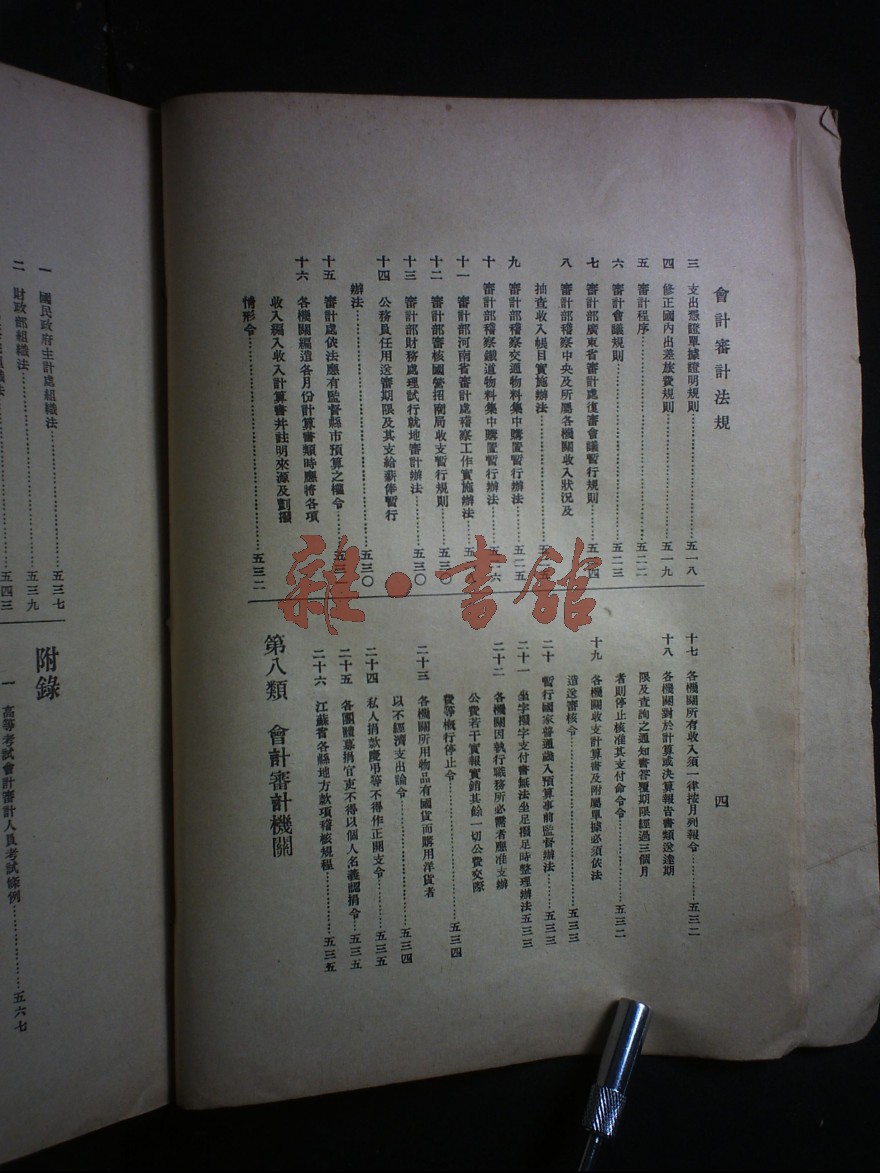 會計審計法規
四
三 支出憑證單據證明規則……五一八
四 修正國內出差旅費規則……五一九
五 審計程序……五二二
六 審計會議規則……五二三
七 審計部廣東省審計處復審會議暫行規則……五二四
八 審計部稽察中央及所屬各機關收入狀況及
抽查收入帳目實施辦法……五
九 審計部稽察交通物料集中購置暫行辦法……五二五
十 審計部稽察鐵道物料集中購置暫行辦法……五二六
十一 審計部河南省審計處稽察工作實施辦法……五
十二 審計部審核國營招商局收支暫行規則……五三
十三 審計部財務處理試行就地審計辦法……五三〇
十四 公務員任用送審期限及其支給薪俸暫行
辦法……五三〇
十五 審計處依法應有監督縣市預算之權令……五三
十六 各機關編造各月份計算書類時應將各項
收入編入收入計算書幷註明來源及劃撥
情形令……五三二
十七 各機關所有收入須一律按月列報令……五三二
十八 各機關對於計算或決算報告書類送達期
限及查詢之通知書答覆期限經過三個月
者則停止核准其支付命令令……五三二
十九 各機關收支計算書及附屬單據必須依法
造送審核令……五三三
二十 暫行國家普通歲入預算事前監督辦法……五三三
二十一 坐字撥字支付書無法坐足撥足時整理辦法五三三
二十二 各機關因執行職務所必需者應准支辦
公費若干實報實銷其餘一切公費交際
費等概行停止令……五三四
二十三 各機關所用物品有國貨而購用洋貨者
以不經濟支出論令……五三四
二十四 私人捐款慶弔等不得作正開支令……五三五
二十五 各團體募捐官吏不得以個人名義認捐令……五三五
二十六 江蘇省各縣地方款項稽核規程……五三五
第八類 會計審計機關
一 國民政府主計處組織法……五三七
二 財政部組織法……五三九
組織法……五四三
附錄
一 高等考試會計審計人員考試條例……五六七
雜·書館